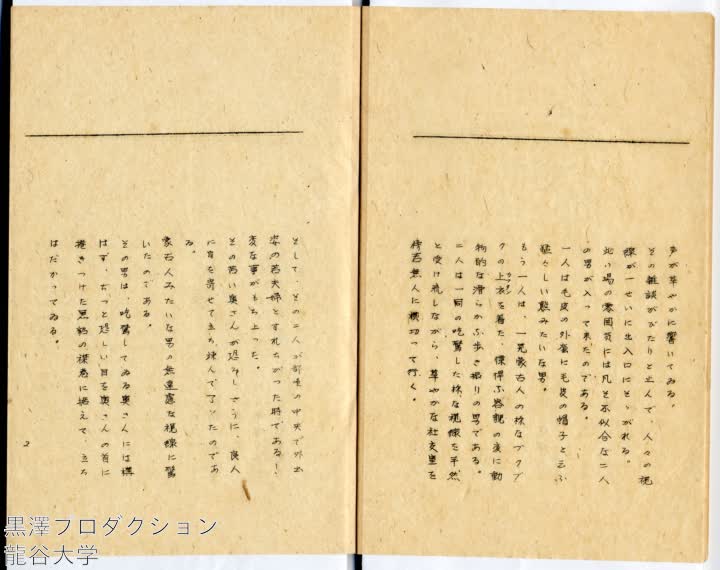 声が華やかに響いてゐる。
その雑談がぴたりと止んで、人々の視
線が一せいに出入口にとゝがれる。
此の場の雰囲気には凡そ不似合な二人
の男が入って来たのである。
一人は毛皮の外套に毛皮の帽子と云ふ
猛々しい熊みたいな男。
もう一人は、一見蒙古人の様なブクブ
クの上衣を着た、慓悍な容貌の
物的な滑らかな歩き振りの男である。
二人は一同の吃驚した様な視線を平然
と受け流しながら、華やかな社交室を
傍若無人に横切って行く。
そして、その二人が部屋の中央で外出
姿の若夫婦とすれちがった時である!
変な事がもち上った。
その若い奥さんが恐ろしさうに、良人
に身を寄せて立ち竦んで了ったのであ
る。
蒙古人みたいな男の無遠慮な視線に驚
いたのである。
その男は、吃驚してゐる奥さんには構
はず、ぢっと恐しい目を奥さんの首に
捲きつけた黒貂の襟巻に据えて、立ち
はだかってゐる。
2
黒澤プロダクション
龍谷大学